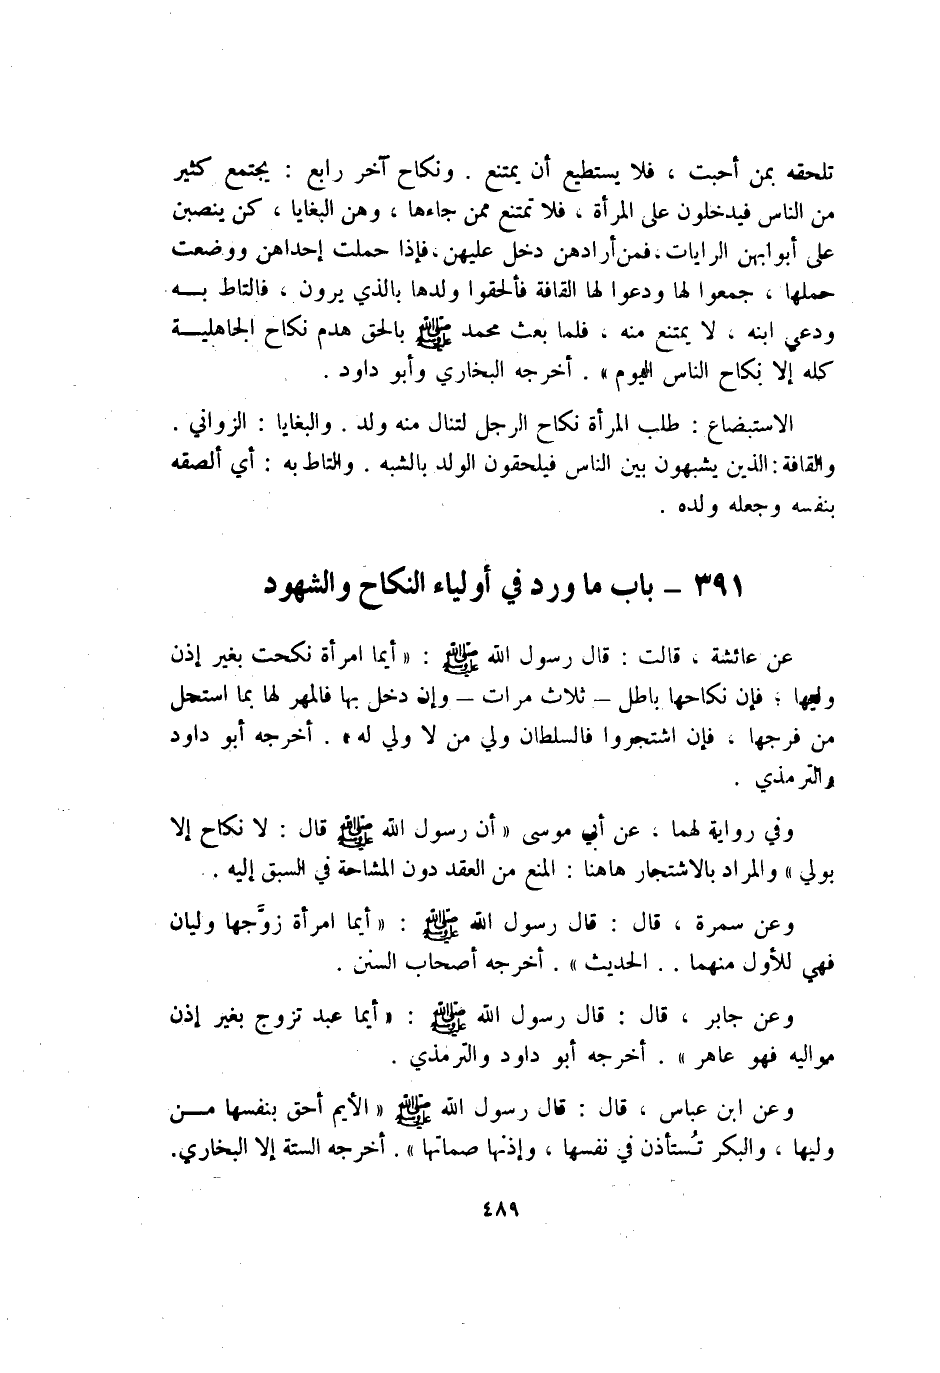 تلحقه بمن أحبت ، فلا يستطيع أن يمتنع . ونكاح آخر رابع : يجتمع كثير
من الناس فيدخلون على المرأة ، فلا تمتنع ممن جاءها ، وهن البغايا ، كن ينصبن
على أبوابهن الرايات . فمن أرادهن دخل عليهن . فإذا حملت إحداهن ووضعت
حملها ، جمعوا لها ودعوا لها القافة فألحقوا ولدها بالذي يرون ، فالتاط بــه
ودعي ابنه ، لا يمتنع منه ، فلما بعث محمد ﷺ بالحق هدم نكاح الجاهليــة
كله إلا نكاح الناس اليوم » . أخرجه البخاري وأبو داود .
الاستبضاع : طلب المرأة نكاح الرجل لتنال منه ولد . والبغايا : الزواني .
والقافة : الذين يشبهون بين الناس فيلحقون الولد بالشبه . والتاط به : أي ألصقه
بنفسه وجعله ولده .
٣٩١ – باب ما ورد في أولياء النكاح والشهود
عن عائشة ، قالت : قال رسول الله ﷺ : « أيما امرأة نكحت بغير إذن
وليها ؛ فإن نكاحها باطل – ثلاث مرات – وإن دخل بها فالمهر لها بما استحل
من فرجها ، فإن اشتجروا فالسلطان ولي من لا ولي له » . أخرجه أبو داود
والترمذي .
وفي رواية لهما ، عن أبي موسى « أن رسول الله ﷺ قال : لا نكاح إلا
بولي » والمراد بالاشتجار هاهنا : المنع من العقد دون المشاحة في السبق إليه .
وعن سمرة ، قال : قال رسول الله ﷺ : « أيما امرأة زوَّجها وليان
فهي للأول منهما . . الحديث » . أخرجه أصحاب السنن .
وعن جابر ، قال : قال رسول الله ﷺ : « أيما عبد تزوج بغير إذن
مواليه فهو عاهر » . أخرجه أبو داود والترمذي .
وعن ابن عباس ، قال : قال رسول الله ﷺ « الأيم أحق بنفسها مــن
وليها ، والبكر تُستأذن في نفسها ، وإذنها صماتها » . أخرجه الستة إلا البخاري.
٤٨٩